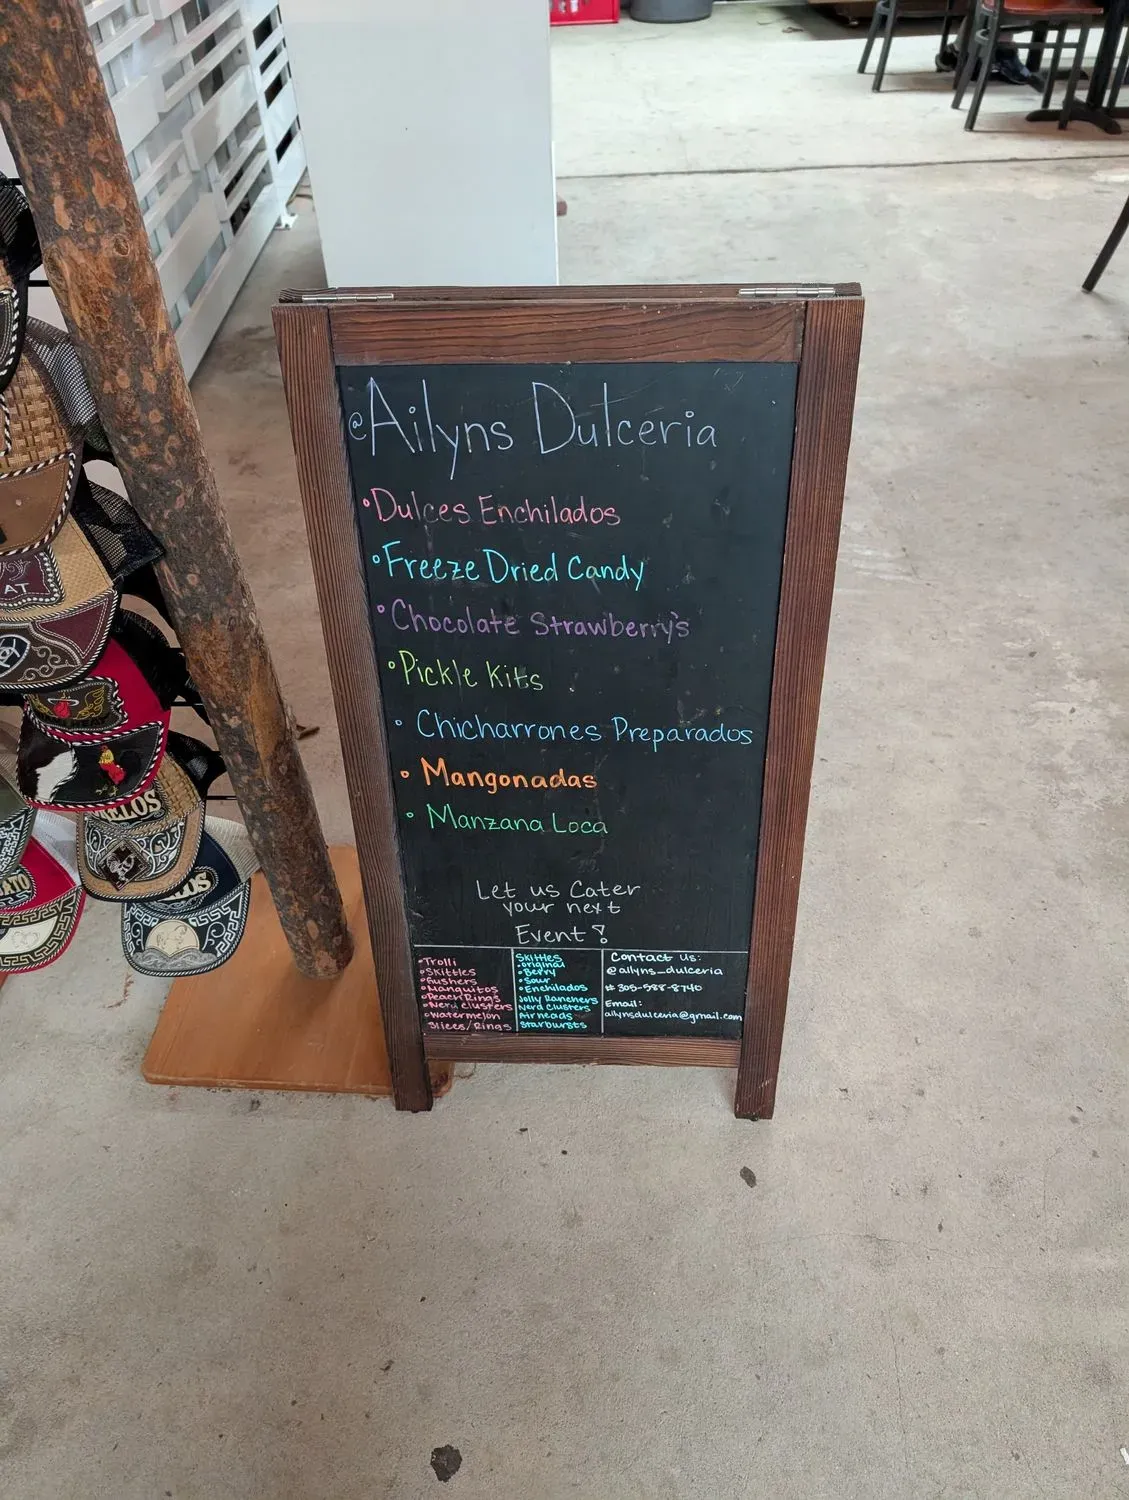 @Ailyns Dulceria
•Dulces Enchilados
•Freeze Dried Candy
•Chocolate Strawberry's
•Pickle Kits
• Chicharrones Preparados
• Mangonadas
• Manzana Loca
Let us Cater
your next
Event!
•Trolli
•Skittles
•Gushers
•Manguitos
•Peach Rings
•Nerd Clusters
•Watermelon
Slices/Rings
Skittles
•original
•Berry
•Sour
•Enchilados
Jolly Ranchers
Nerd Clusters
Airheads
Starbursts
Contact Us:
@ailyns_dulceria
#305-988-8740
Email:
ailynsdulceria@gmail.com
AT
ELOS